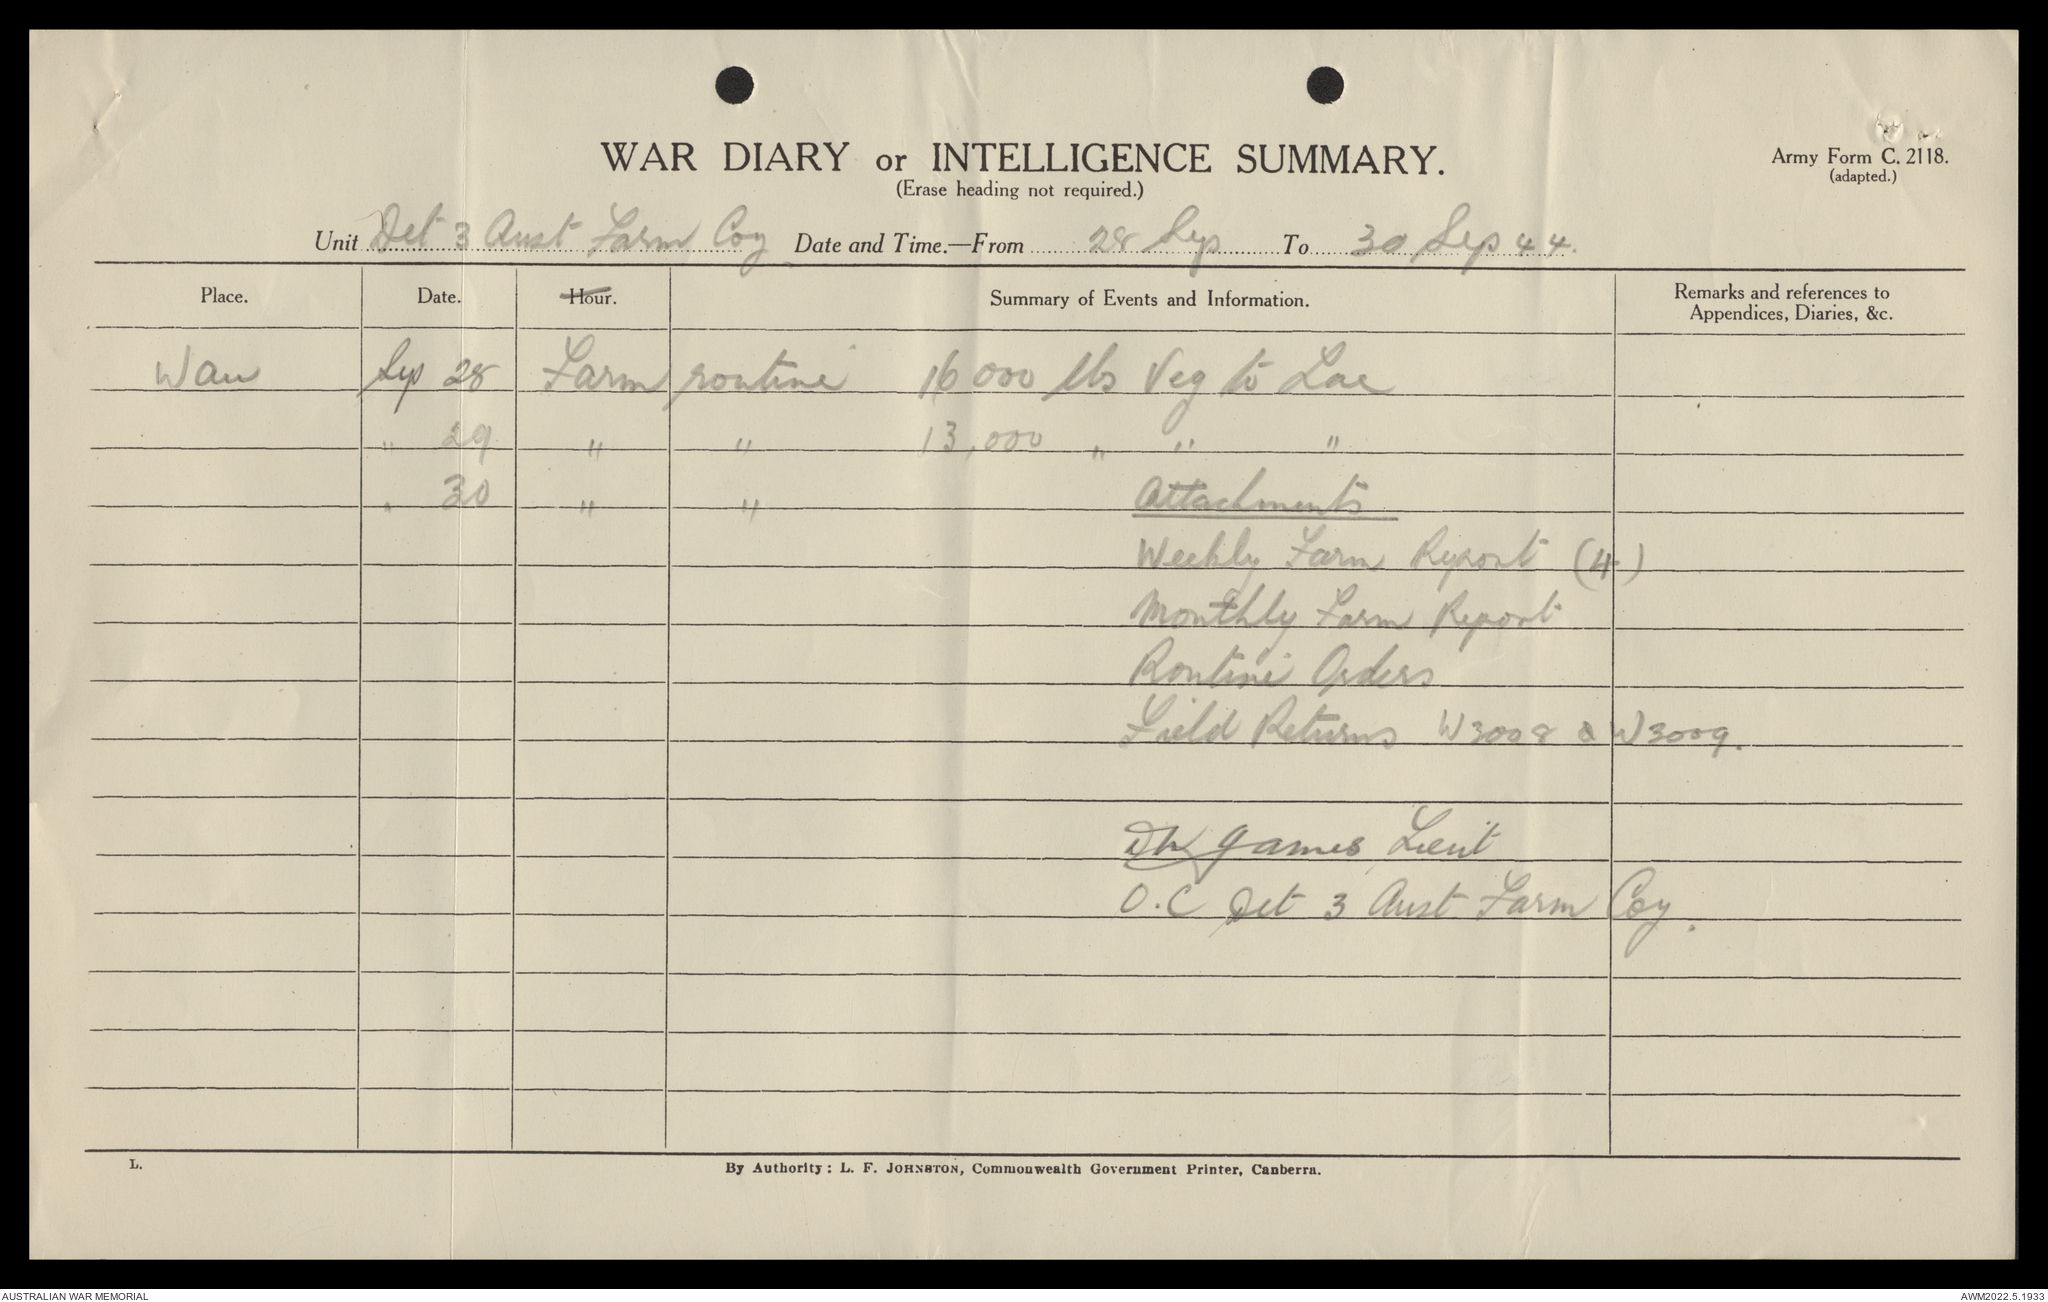 WAR DIARY or INTELLIGENCE SUMMARY.
Army Form C. 2118.
(Erase heading not required.)
(adapted.)
Unit Det 3 Aust Farm Coy Date and Time.—From 28 Sep To 30 Sep 44.
Place. Date. Hour. Summary of Events and Information. Remarks and references to
Appendices, Diaries, &c.
Wau Sep 28 Farm routine 16000 lbs Veg to Lae
" 29 " " 13,000 " " "
" 30 " " Attachments
Weekly Farm Report (4)
Monthly Farm Report
Routine Orders
Field Returns W3008 & W3009.
James Lieut
O.C Det 3 Aust Farm Coy.
L.
By Authority: L. F. JOHNSTON, Commonwealth Government Printer, Canberra.
AUSTRALIAN WAR MEMORIAL
AWM2022.5.1933